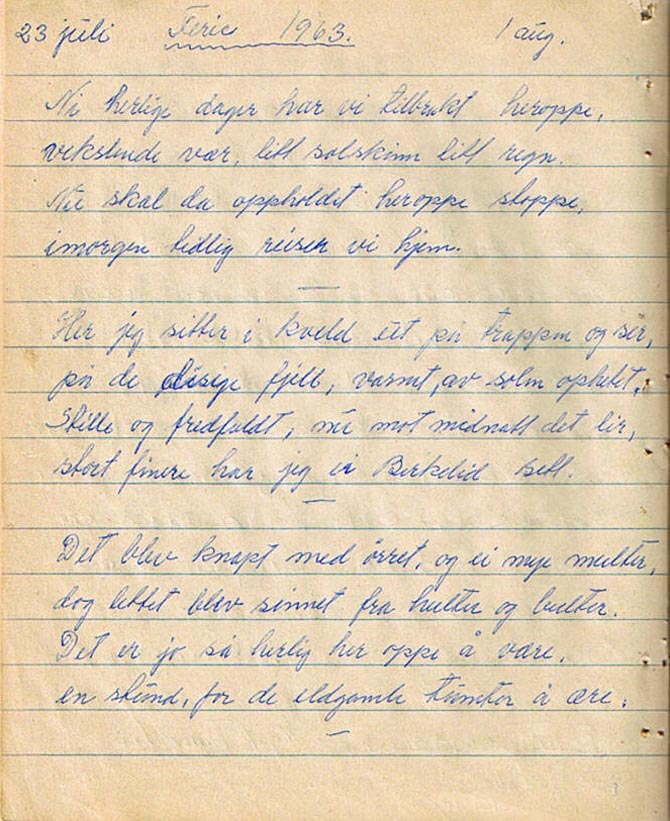 23 juli Ferie 1963. 1 aug.
Ni herlige dager har vi tilbrakt heroppe,
vekslende vær, litt solskinn litt regn.
Nu skal da oppholdet heroppe stoppe,
imorgen tidlig reiser vi hjem.
Her jeg sitter i kveld ut på trappen og ser,
på de disige fjell, varmt, av solen ophetet.
Stille og fredfuldt, nu mot midnatt det lir,
stort finere har jeg ei Birkelid sett.
Det blev knapt med ørret, og ei mye multer,
dog lettet blev sinnet fra hulter og bulter.
Det er jo så herlig her oppe å være.
en stund, for de eldgamle tumter å ære.